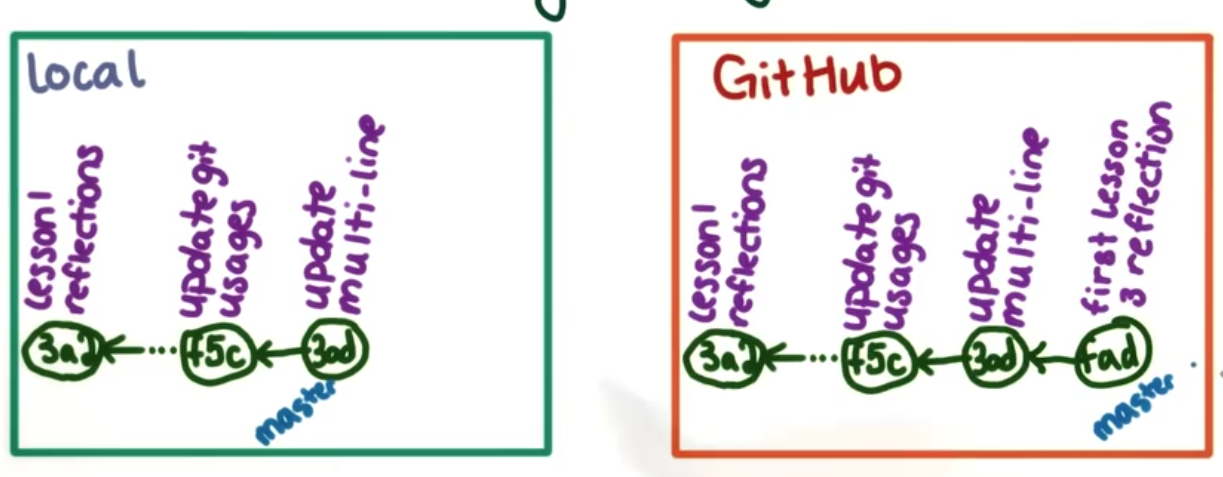 local
lesson 1
reflections
update git
usages
update
multi-line
3a2
...
f5c
3ad
master
GitHub
lesson 1
reflections
update git
usages
update
multi-line
first lesson
3 reflection
3a2
...
f5c
3ad
fad
master